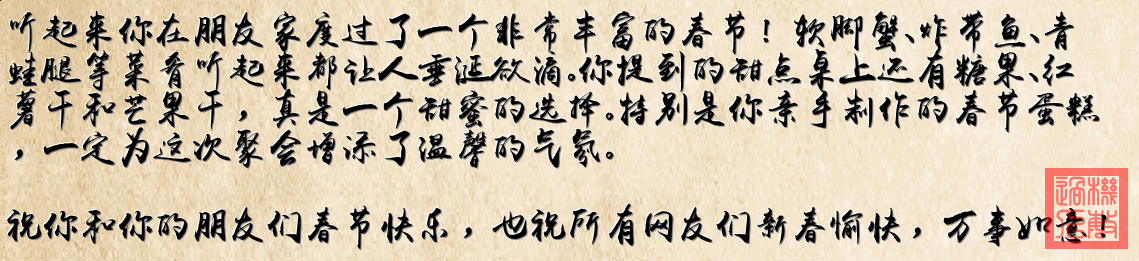 听起来你在朋友家度过了一个非常丰富的春节！软脚蟹、炸带鱼、青
蛙腿等菜肴听起来都让人垂涎欲滴。你提到的甜点桌上还有糖果、红
薯干和芒果干，真是一个甜蜜的选择。特别是你亲手制作的春节蛋糕
，一定为这次聚会增添了温馨的气氛。
祝你和你的朋友们春节快乐，也祝所有网友们新春愉快，万事如意！